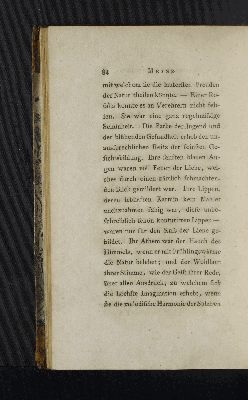 84 MEINE
mit welchem sie die inneren Freuden
der Natur theilen könnte. — Einer Ro-
salie konnte es an Verehrern nicht feh-
len. Sie war eine ganz regelmäßige
Schönheit. Die Farbe der Jugend und
der blühenden Gesundheit erhob den un-
aussprechlichen Reitz der feinsten Ge-
sichtsbildung. Ihre sanften blauen Au-
gen waren voll Feuer der Liebe, wel-
ches durch einen zärtlich schmachten-
den Blick gemildert war. Ihre Lippen,
deren lebhaften Karmin kein Mahler
nachzuahmen fähig war, diese unbe-
schreiblich schön konturirten Lippen —
waren nur für den Kuß der Liebe ge-
bildet. Ihr Athem war der Hauch des
Himmels, wenn er mit Frühlingswärme
die Natur belebet; und der Wohllaut
ihrer Stimme, wie der Geist ihrer Rede,
über allen Ausdruck, zu welchem sich
die höchste Imagination erhebt, wenn
sie die melodische Harmonie der Sphären